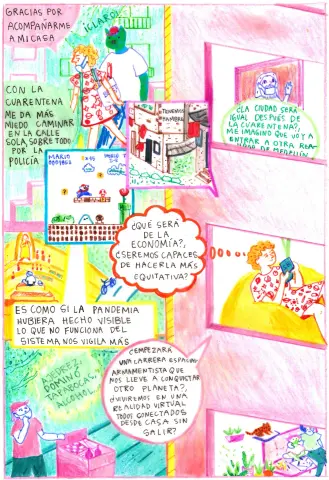 GRACIAS POR
ACOMPAÑARME
A MI CASA
¡CLARO!
CON LA
CUARENTENA
ME DA MÁS
MIEDO CAMINAR
EN LA CALLE
SOLA, SOBRE TODO
POR LA
POLICÍA
TENEMOS
HAMBRE
¿LA CIUDAD SERÁ
IGUAL DESPUÉS DE
LA CUARENTENA?,
ME IMAGINO QUE VOY A
ENTRAR A OTRA REA-
DE MEDELLÍN
MARIO
WORLD
¿QUÉ SERÁ
DE LA
ECONOMÍA?,
¿SEREMOS CAPACES
DE HACERLA MÁS
EQUITATIVA?
ES COMO SI LA PANDEMIA
HUBIERA HECHO VISIBLE
LO QUE NO FUNCIONA DEL
SISTEMA, NOS VIGILA MÁS
DOMINÓ
TAPABOCAS
ALCOHOL
¿EMPEZARÁ
UNA CARRERA ESPACIAL
ARMAMENTISTA QUE
NOS LLEVE A CONQUISTAR
OTRO PLANETA?,
¿VIVIREMOS EN UNA
REALIDAD VIRTUAL
TODOS CONECTADOS
DESDE CASA SIN
SALIR?